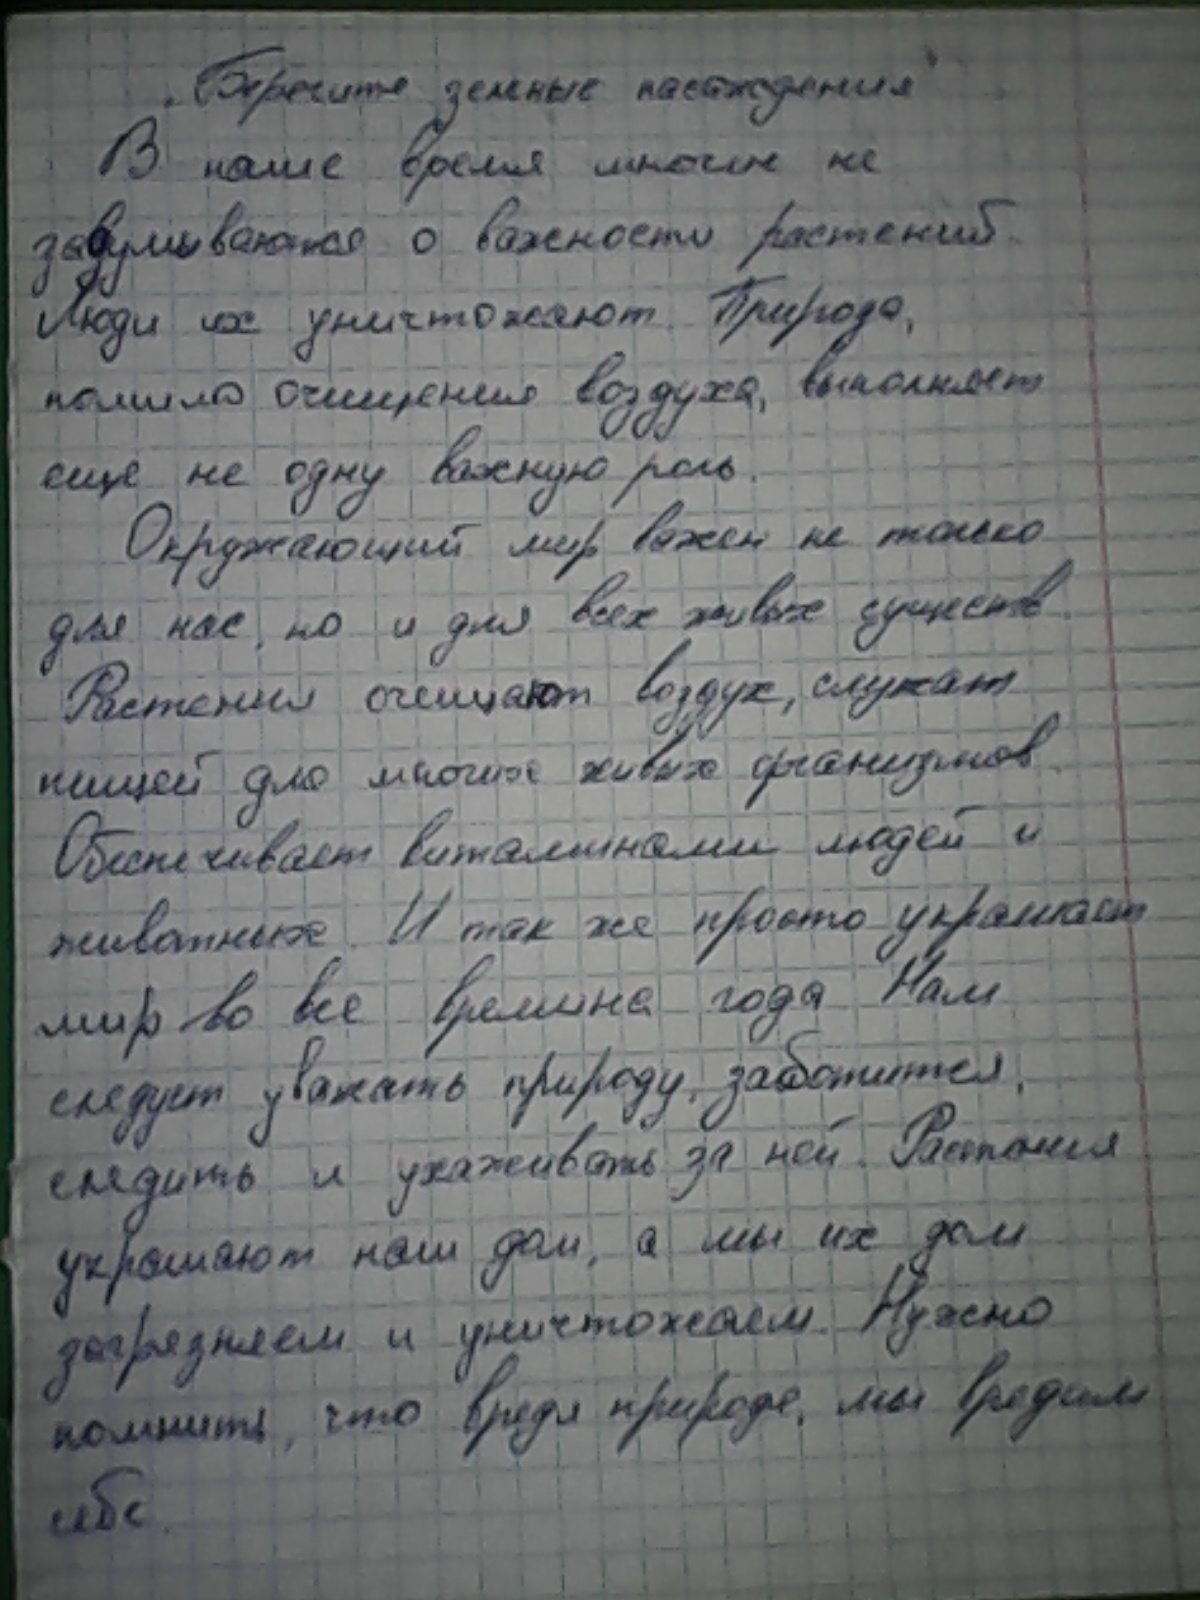 „Берегите зеленые насаждения"
В наше время многие не
задумываются о важности растений.
Люди их уничтожают. Природа,
помимо очищения воздуха, выполняет
еще не одну важную роль.
Окружающий мир важен не только
для нас, но и для всех живых существ.
Растения очищают воздух, служат
пищей для многих живых организмов.
Обеспечивает витаминами людей и
животных. И так же просто украшает
мир во все времена года. Нам
следует уважать природу, заботится,
следить и ухаживать за ней. Растения
украшают наш дом, а мы их дом
загрязняем и уничтожаем. Нужно
помнить, что вредя природе, мы вредим
себе.